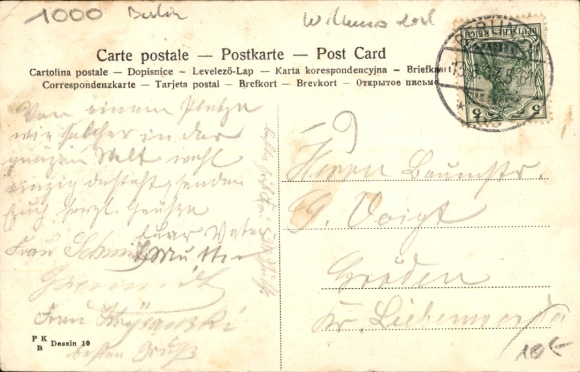 1000 Berlin
Wilmersdorf
Carte postale — Postkarte — Post Card
Cartolina postale — Dopisnice — Levelező-Lap — Karta korespondencyjna — Briefkaart
Correspondenzkarte — Tarjeta postal — Brefkort — Brevkort — Открытое письмо
DEUTSCHES REICH
5 5
BERLIN
Von einem Platze
wie solcher in der
ganzen Welt wohl
einzig dasteht, senden
Euch herzl. Grüße
Euer Vater
Frau Schmidt Mutter
Frau
besten Gruß
Herrn Baumstr.
G. Voigt
Gröden
Kr. Liebenwerda
P K
B Dessin 10
10.-